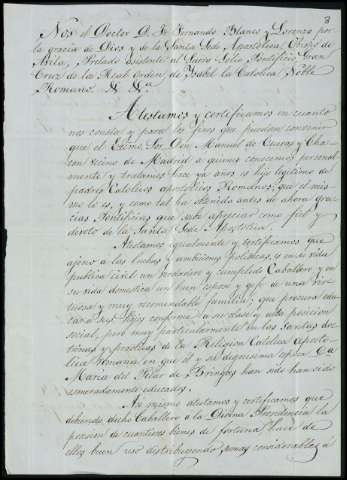 3
Nos el Doctor D. Fr. Fernando Blanco y Lorenzo por
la gracia de Dios y de la Santa Sede Apostolica Obispo de
Avila, Prelado asistente al Sacro Solio Pontificio Gran
Cruz de la Real Orden de Ysabel la Catolica Noble
Romano &. &.
Atestamos y certificamos en cuanto
nos consta y para los fines que puedan convenir
que el Excmo Sor. Don Manuel de Cuevas y Cha-
con vecino de Madrid a quienes conocemos personal-
mente y tratamos hace ya años es hijo legitimo de
padres Catolicos apostolicos Romanos, que el mis-
mo lo es, y como tal ha obtenido antes de ahora gra-
cias Pontificias que sabe apreciar como fiel y
devoto de la Santa Sede Apostolica
Atestamos igualmente y certificamos que
ageno a las luchas y ambiciones politicas, es en su vida
publica civil un honrado y cumplido Caballero y en
su vida domestica un buen esposo y gefe de una vir-
tuosa y muy recomendable familia, que procura edu-
car a sus hijos conforme a su clase y alta posicion
social, pero muy particularmente en las santas doc-
trinas y practicas de la Religion Catolica Aposto-
lica Romana en que él y su dignisima esposa Da.
Maria del Pilar de Bringas han sido
esmeradamente educados.
Asi mismo atestamos y certificamos que
debiendo dicho Caballero a la Divina Providencia la
posesion de cuantiosos bienes de fortuna hace de
ellos buen uso distribuyendo sumas considerables a